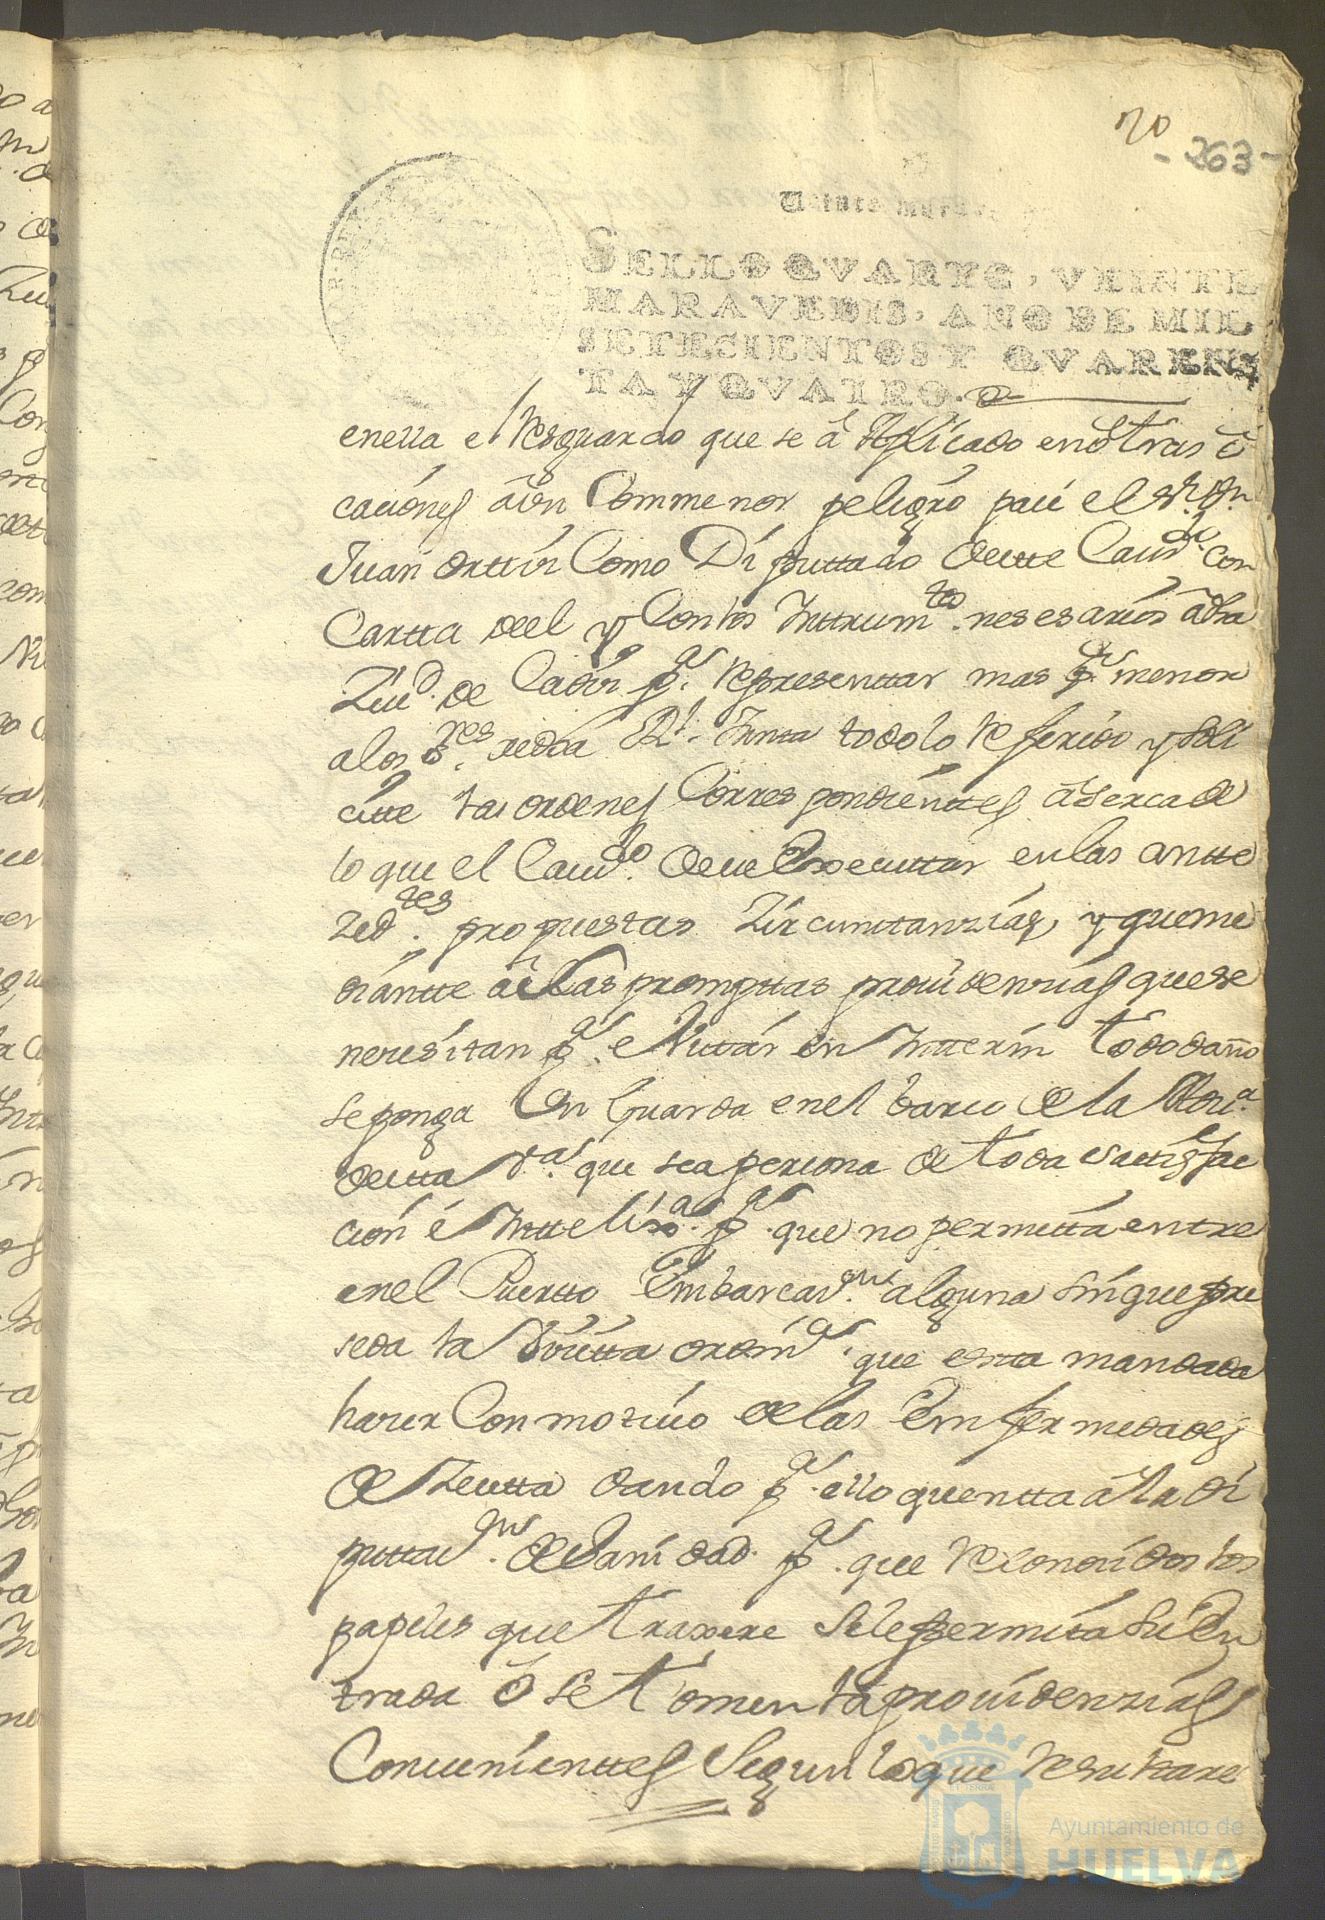 70
-263-
Veinte maraved
SELLO QVARTO, VEINTE
MARAVEDIS, AÑO DE MIL
SETECIENTOS Y QVAREN-
TA Y QVATRO.
enella el Resguardo que se á Aplicado en otras
caciones aun Com menor peligro el Sr. Dn.
Juan orttiz Como Diputtado deeste Cavdo. con
Cartta deel y Con los Insttrumttos. nesesarios â dha
Ziud. de Cadiz pa. Representtar mas pr. menor
a los Sres. redha Rl. Junta todo lo Referido y soli
citte las ordenes Correspondienttes âserca de
lo que el Cavdo. deve Executtar en las antte
Zedtes. propuestas Zircunstanzias, y que me
diantte â las prompttas providenzias que se
necesitan pa. evittar en Intterin todo daño
se ponga Un Guarda en el barco de la
deesta Va. que sea persona de toda sattisfac
cion é Inttelixa. pa. que no permitta entre
en el Puertto Embarcazon. alguna sin que pre
seda la Visitta ordina. que esta mandada
hacer Con motivo de las Emfermedades
de Zeutta dando pa. ello quentta â la Di
puttazn. de Sanidad pa. que Reconocidos los
papeles que traxere se le permita su En
trada ô se tomen las providenzias
Convenienttes Segun lo que Resultare
Ayuntamiento de
HUELVA